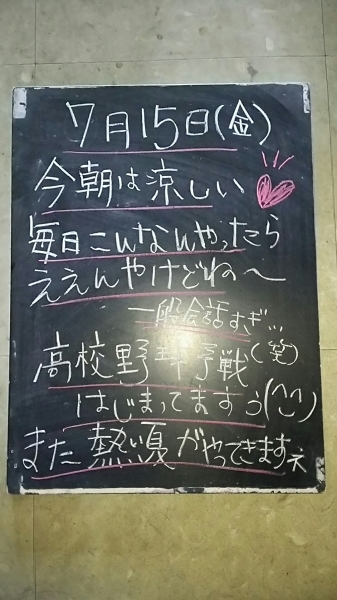 7月15日(金)
今朝は涼しい
毎日こんなんやったら
ええんやけどね〜
一般会話すぎ...
(笑)
高校野球予戦
はじまってますぅ(^^)
また熱い夏がやってきますネ